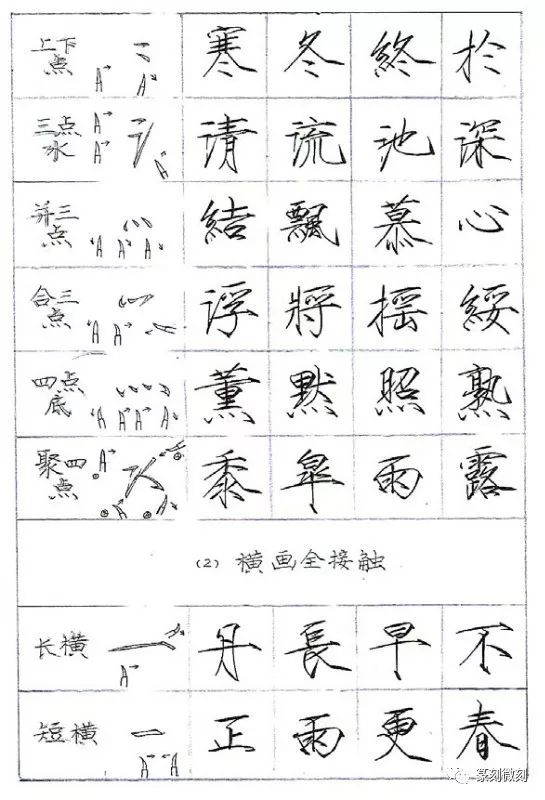 上下点 寒 冬 終 於
三点水 请 流 池 深
并三点 結 飄 慕 心
合三点 浮 將 摇 綏
四点底 薰 默 照 熟
聚四点 黍 雨 露
(2) 横画全接触
长横 丹 長 早 不
短横 正 雨 更 春
篆刻微刻